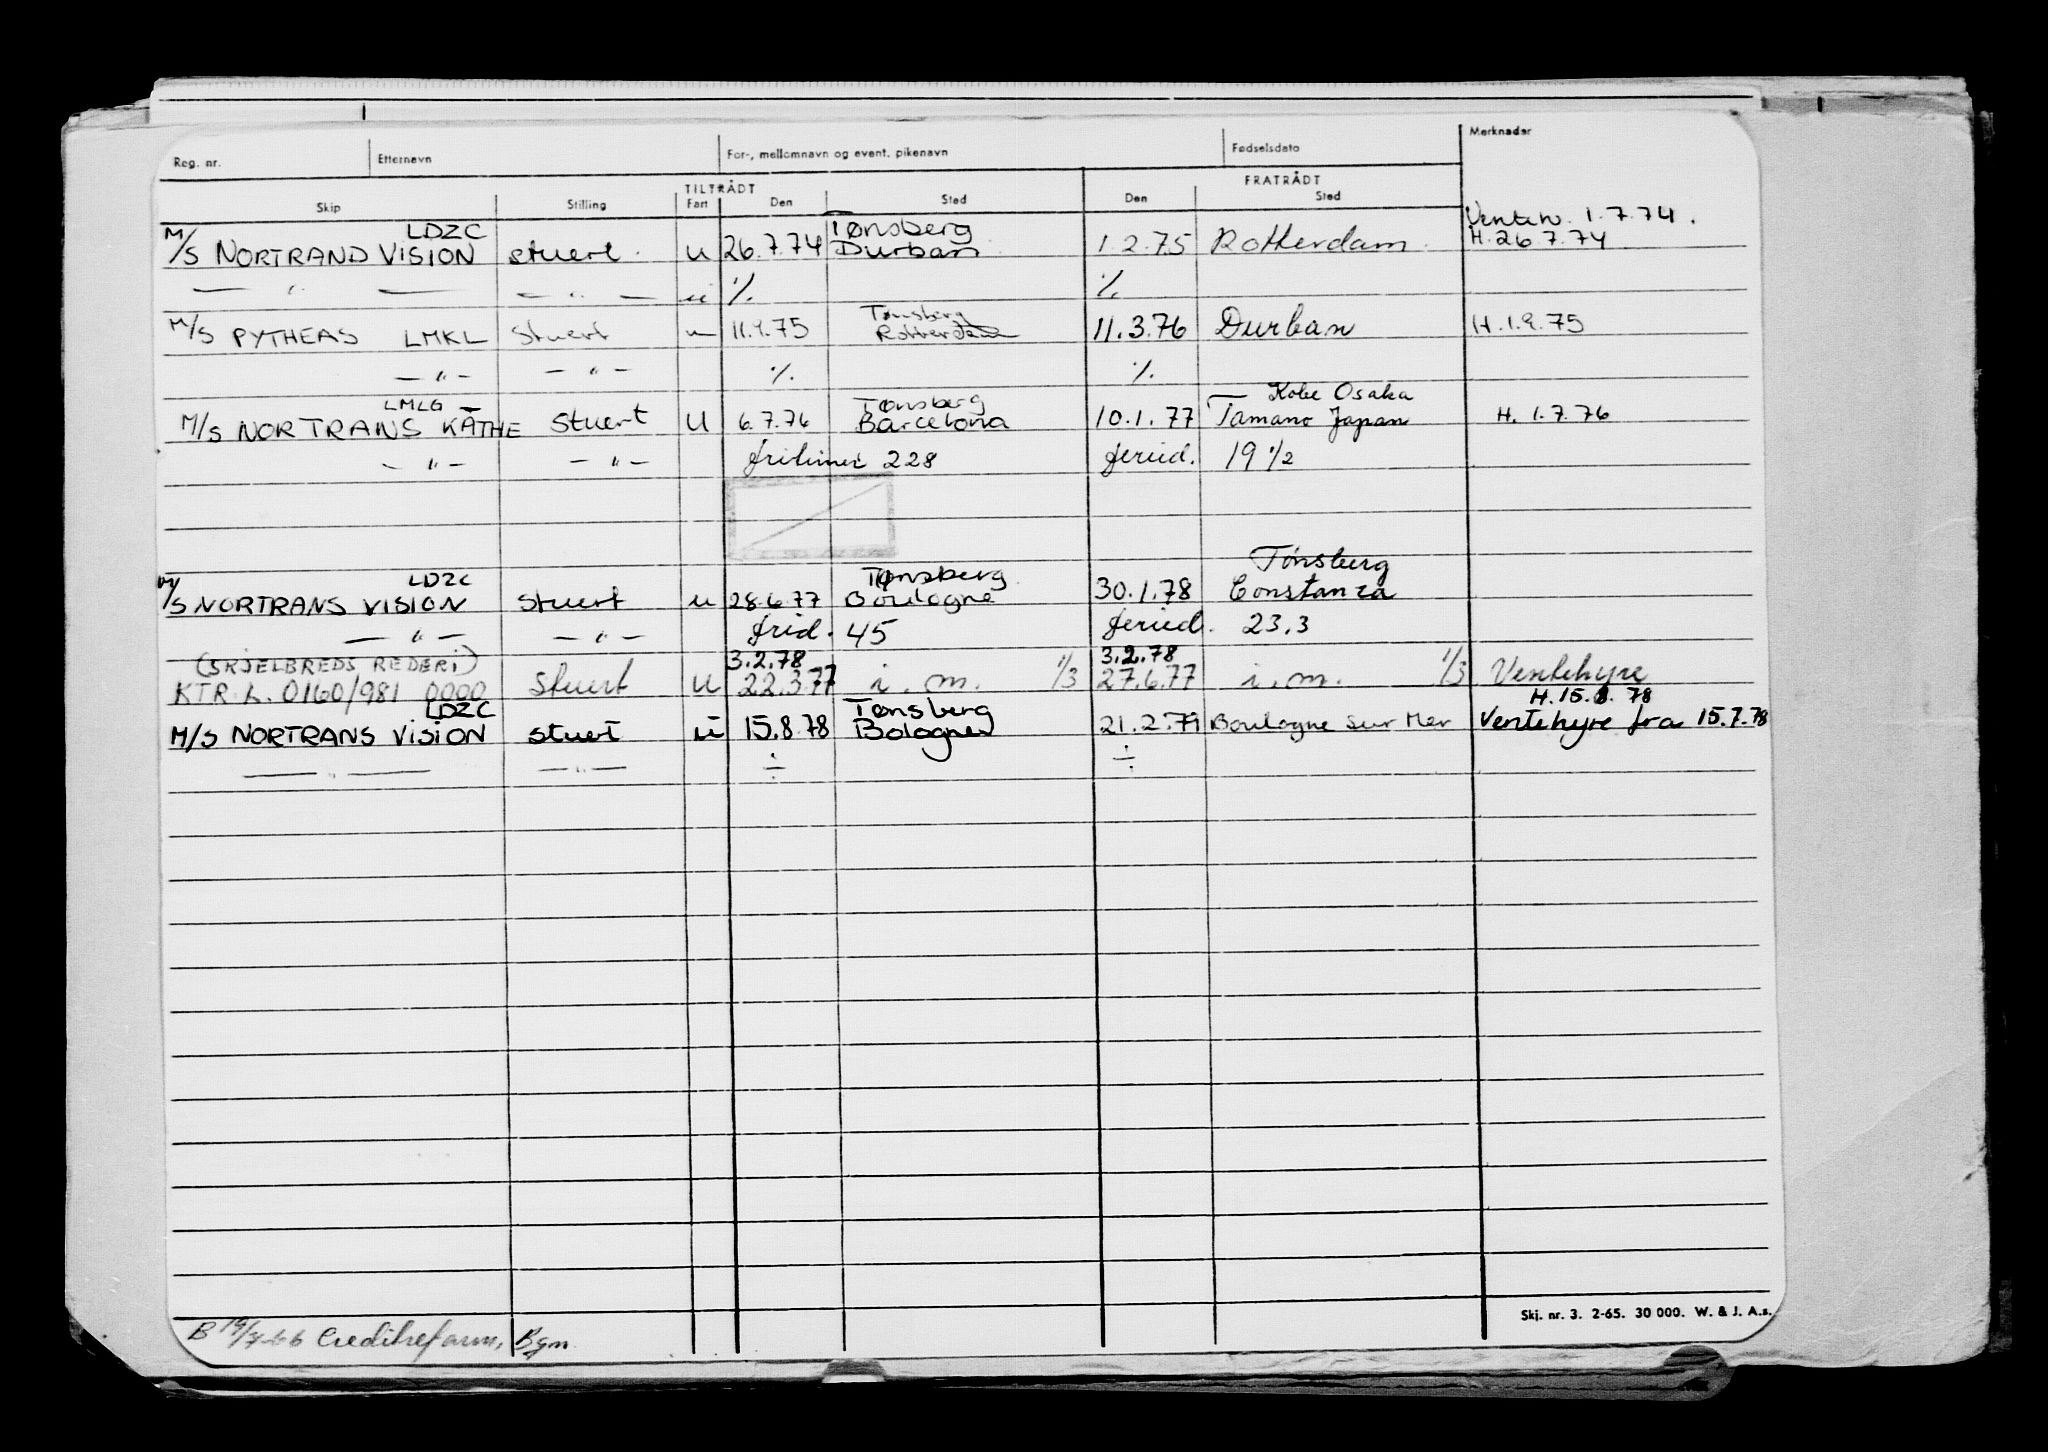 Reg. nr. Etternavn For-, mellomnavn og event. pikenavn Fødselsdato Merknader
TILTRÅDT FRATRÅDT
Skip Stilling Fart Den Sted Den Sted
LDZC Tønsberg Ventew. 1.7.74.
M/S NORTRAND VISION stuert. u 26.7.74 Durban 1.2.75 Rotterdam H. 26.7.74
— " — — " — u ·/. ·/.
Tønsberg
M/S PYTHEAS LMKL Stuert u 11.9.75 Rotterdam 11.3.76 Durban H. 1.9.75
— " — — " — ·/. ·/.
LMLG Tønsberg Kobe Osaka
M/S NORTRANS KÄTHE Stuert U 6.7.76 Barcelona 10.1.77 Tamano Japan H. 1.7.76
— " — — " — fritimer 228 feried. 19 1/2
LDZC Tønsberg Tønsberg
M/S NORTRANS VISION Stuert u 28.6.77 Boulogne 30.1.78 Constanza
— " — — " — frid. 45 feried. 23.3
(SKJELBREDS REDERI) 3.2.78 3.2.78
KTR.L. 0160/981 0000 Stuert U 22.3.77 i.m. 1/3 27.6.77 i.m. 1/3 Ventehyre
LDZC Tønsberg H. 15.8.78
M/S NORTRANS VISION stuert u 15.8.78 Bologne 21.2.79 Boulogne sur Mer Ventehyre fra 15.7.78
— " — — " — ÷ ÷
Skj. nr. 3. 2-65. 30 000. W. & J. A.s.
B Creditreform, Bgn.